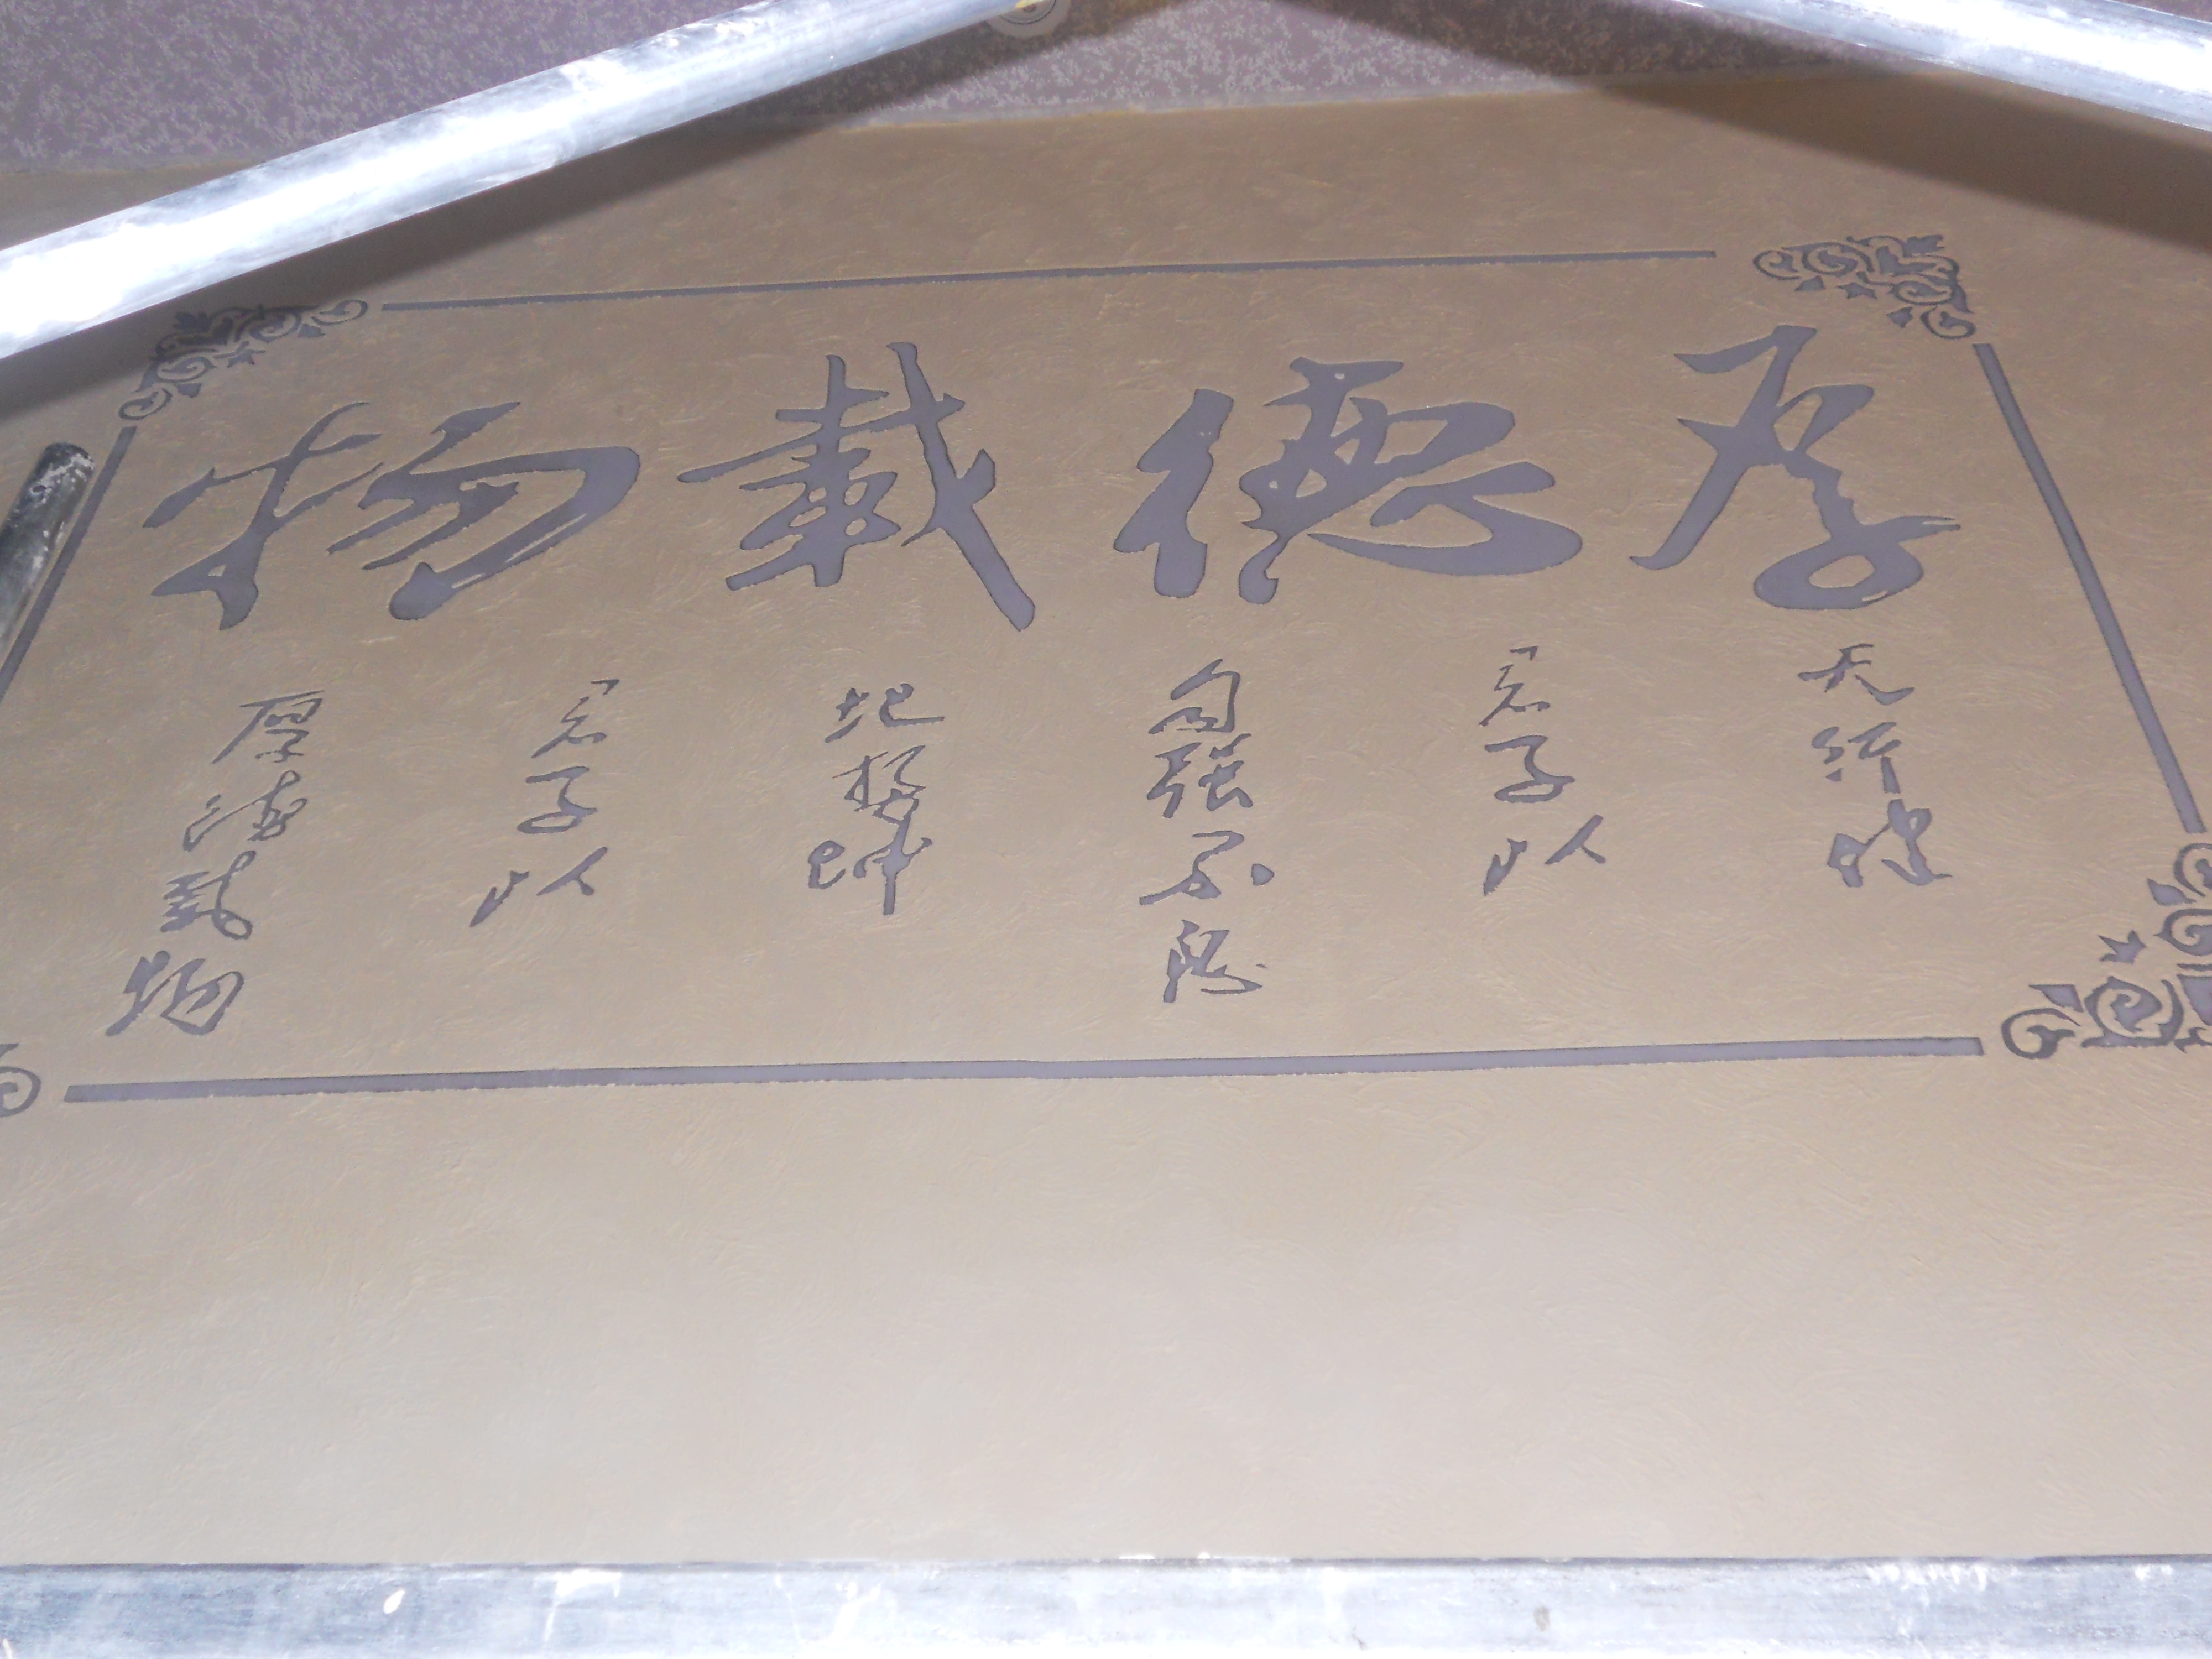 厚德載物
天行健
君子以
自强不息
地势坤
君子以
厚德載物